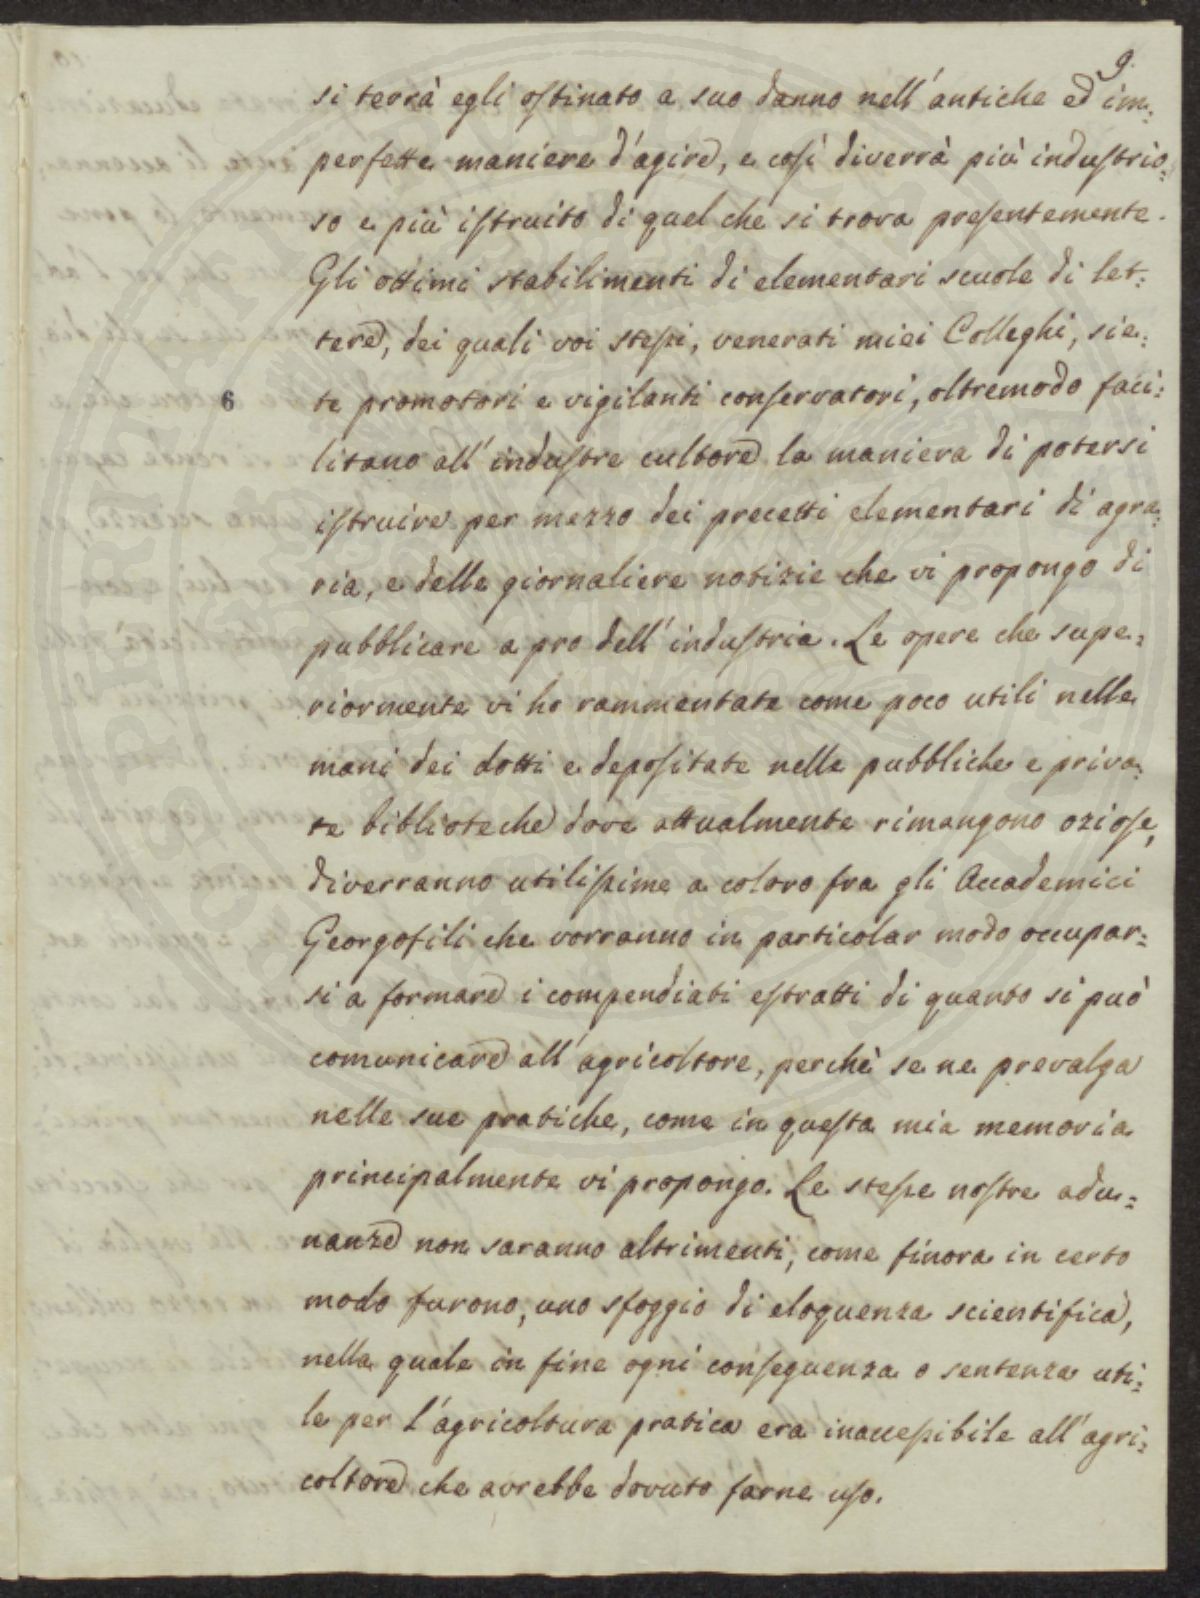 9.
si terrà egli ostinato a suo danno nell'antiche ed im:
perfette maniere d'agire, e così diverrà più industrio:
so e più istruito di quel che si trova presentemente.
Gli ottimi stabilimenti di elementari scuole di let:
tere, dei quali voi stessi, venerati miei Colleghi, sie:
6 te promotori e vigilanti conservatori, oltremodo faci:
litano all'industre cultore la maniera di potersi
istruire per mezzo dei precetti elementari di agra:
ria, e delle giornaliere notizie che vi propongo di
pubblicare a pro dell'industria. Le opere che supe:
riormente vi ho rammentate come poco utili nelle
mani dei dotti e depositate nelle pubbliche e priva:
te biblioteche dove attualmente rimangono oziose,
diverranno utilissime a coloro fra gli Accademici
Georgofili che vorranno in particolar modo occupar:
si a formare i compendiati estratti di quanto si può
comunicare all'agricoltore, perchè se ne prevalga
nelle sue pratiche, come in questa mia memoria
principalmente vi propongo. Le stesse nostre adu:
nanze non saranno altrimenti, come finora in certo
modo furono, uno sfoggio di eloquenza scientifica,
nella quale in fine ogni conseguenza o sentenza uti:
le per l'agricoltura pratica era inaccessibile all'agri:
coltore che avrebbe dovuto farne uso.